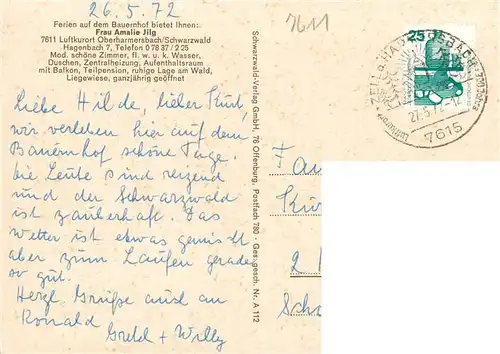 26.5.72
7611
Ferien auf dem Bauernhof bietet Ihnen:
Frau Amalie Jilg
7611 Luftkurort Oberharmersbach/Schwarzwald
Hagenbach 7, Telefon 0 78 37 / 2 25
Mod. schöne Zimmer, fl. w. u. k. Wasser,
Duschen, Zentralheizung, Aufenthaltsraum
mit Balkon, Teilpension, ruhige Lage am Wald,
Liegewiese, ganzjährig geöffnet
Liebe Hilde, lieber Kurt,
wir verleben hier auf dem
Bauernhof schöne Tage.
Die Leute sind reizend
und der Schwarzwald
ist zauberhaft. Das
Wetter ist etwas gemischt
aber zum Laufen gerade
so gut.
Herzl. Grüße auch an
Ronald
Gretel + Willy
Schwarzwald-Verlag GmbH, 76 Offenburg, Postfach 780 · Ges. gesch. Nr. A 112
25
ZELL A
Luftkurort
27.5.72-12
7615
Fa
Ku
2
Sch